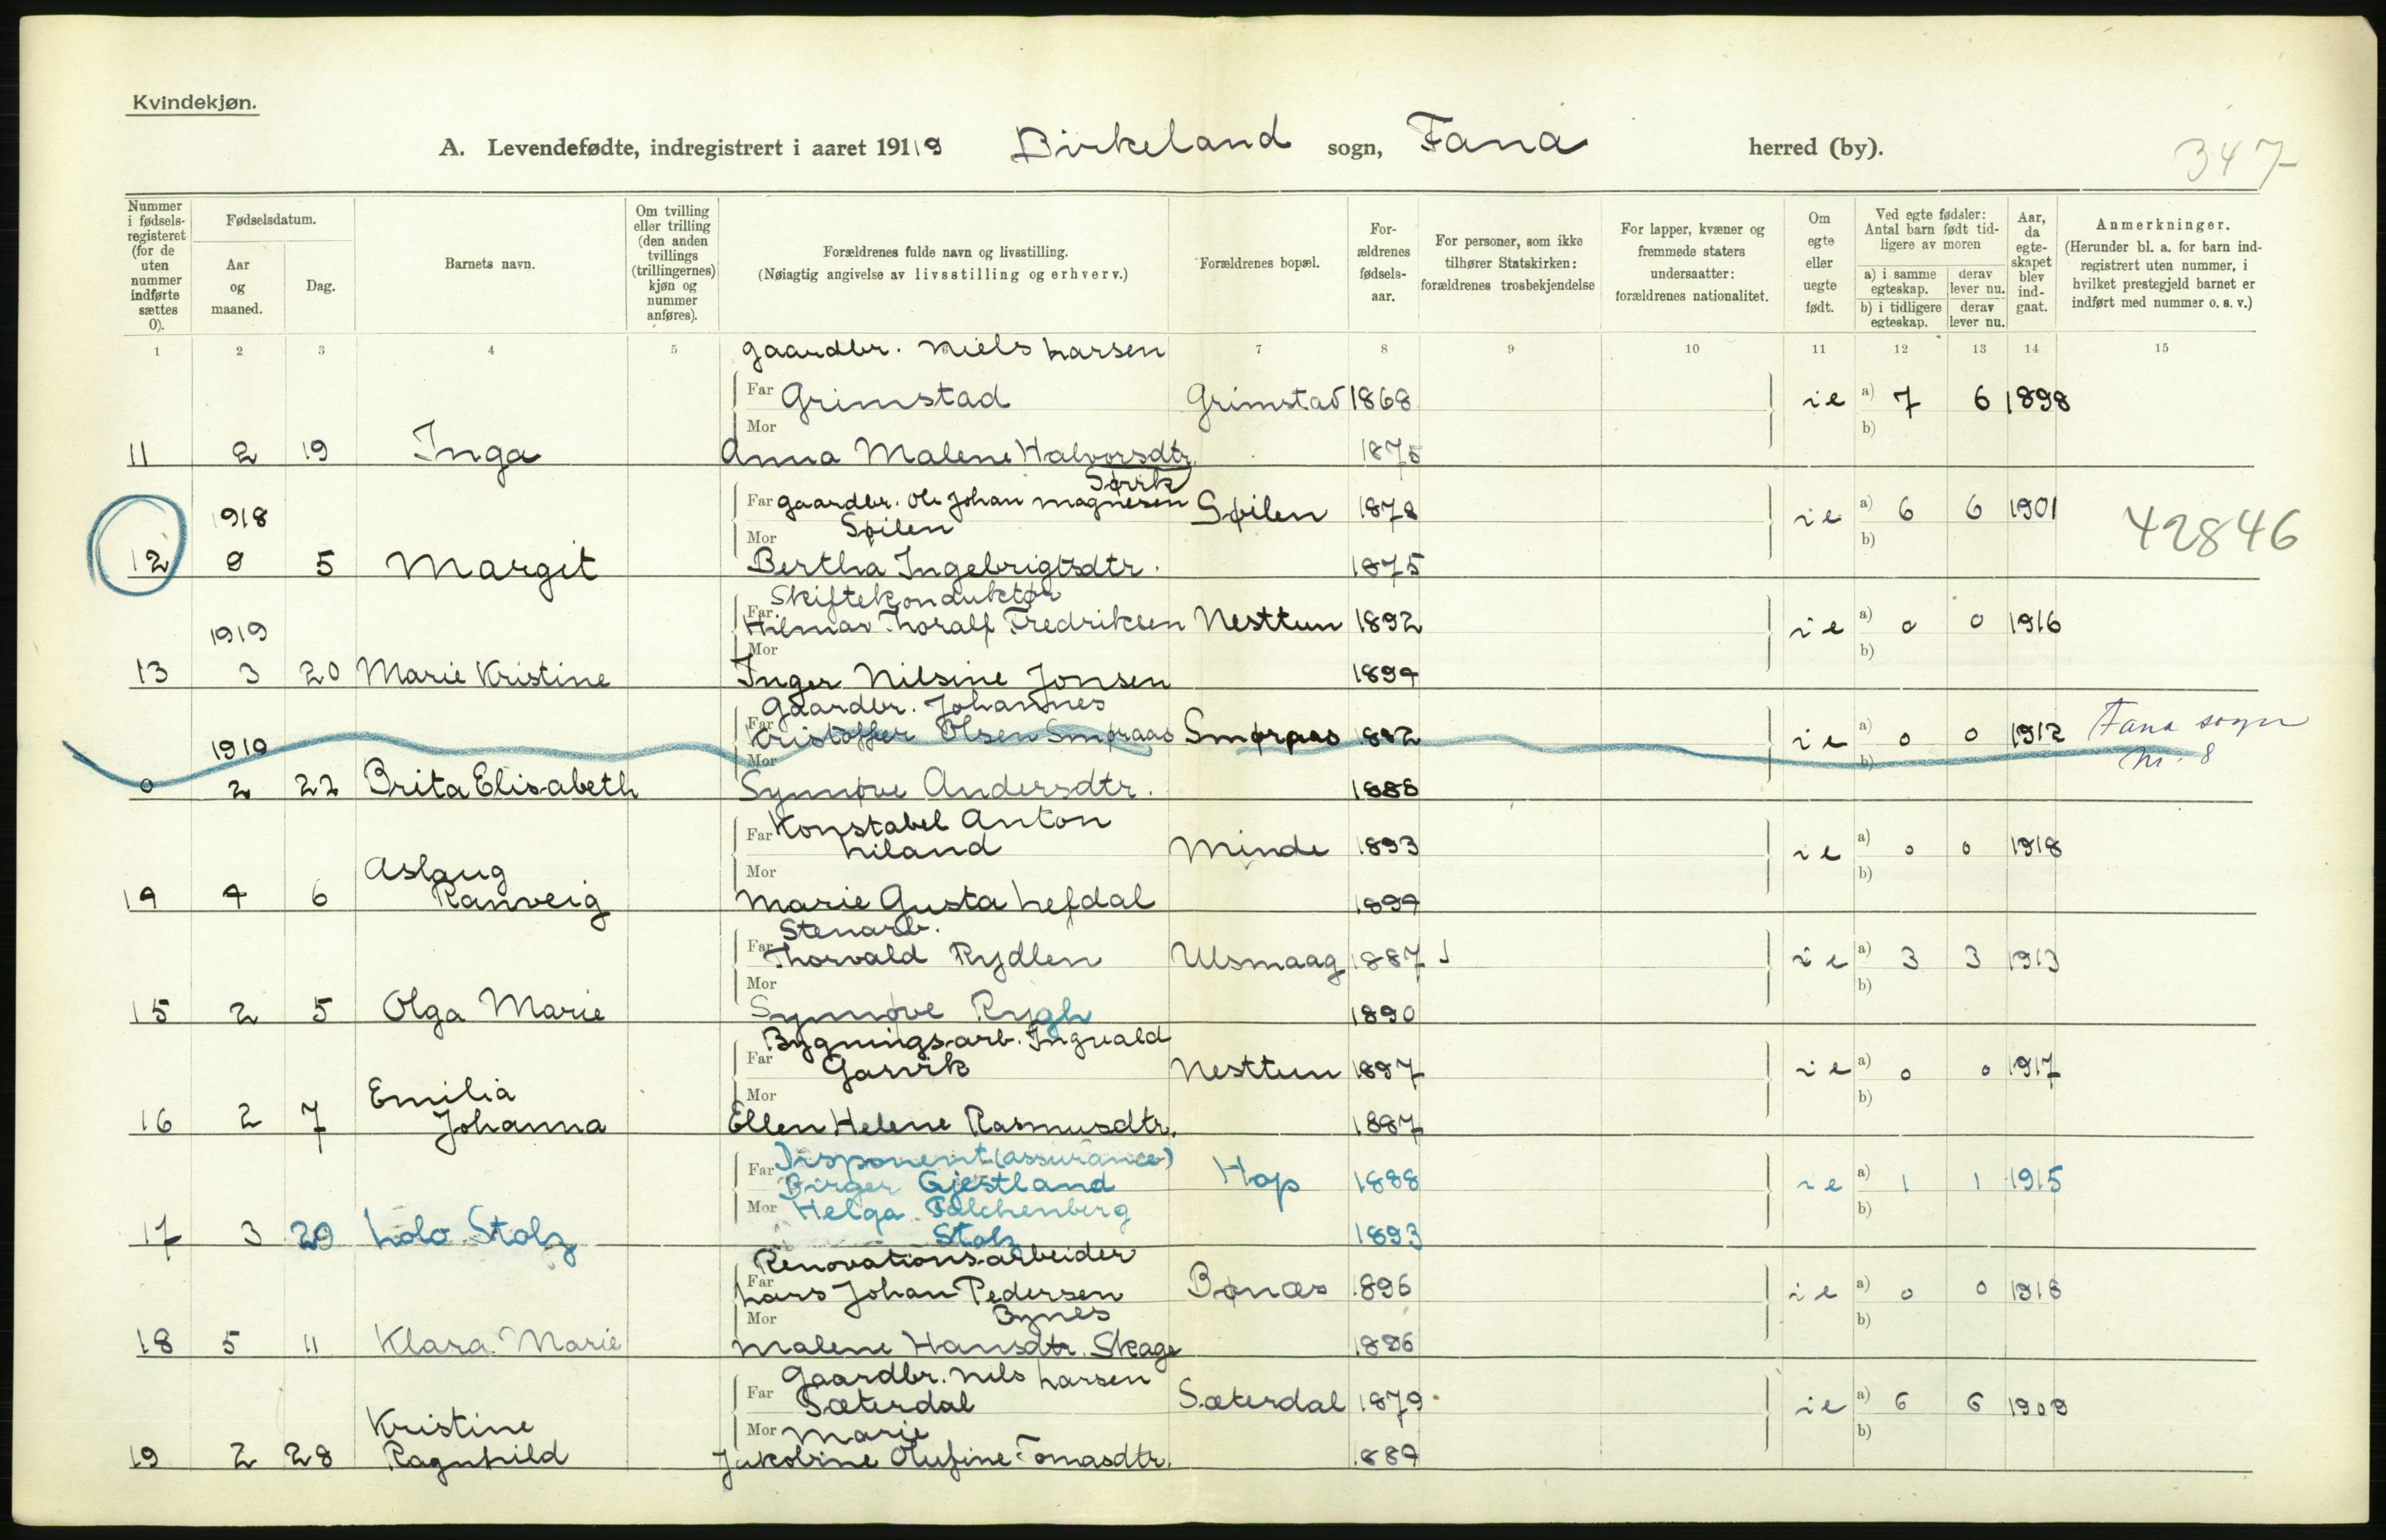 Kvindekjøn.
A. Levendefødte, indregistrert i aaret 1919 Birkeland sogn, Fana herred (by).
347
Nummer i fødsels-registeret (for de uten nummer indførte sættes 0).
Fødselsdatum.
Aar og maaned.
Dag.
Barnets navn.
Om tvilling eller trilling (den anden tvillings (trillingernes) kjøn og nummer anføres).
Forældrenes fulde navn og livsstilling.
(Nøiagtig angivelse av livsstilling og erhverv.)
Forældrenes bopæl.
For-ældrenes fødsels-aar.
For personer, som ikke tilhører Statskirken: forældrenes trosbekjendelse
For lapper, kvæner og fremmede staters undersaatter: forældrenes nationalitet.
Om egte eller uegte født.
Ved egte fødsler: Antal barn født tid-ligere av moren
a) i samme egteskap.
derav lever nu.
b) i tidligere egteskap.
derav lever nu.
Aar, da egte-skapet blev ind-gaat.
Anmerkninger.
(Herunder bl. a. for barn ind-registrert uten nummer, i hvilket prestegjeld barnet er indført med nummer o. s. v.)
1 2 3 4 5 7 8 9 10 11 12 13 14 15
gaardbr. Niels Larsen
Far Grimstad Grimstad 1868 ie a) 7 6 1898
Mor b)
11 2 19 Inga Anna Malene Halvorsdtr. 1875
Sørvik
1918 Far gaardbr. Ole Johan Magnesen Søilen 1878 ie a) 6 6 1901 42846
Mor Søilen b)
12 9 5 Margit Bertha Ingebrigtsdtr. 1875
Skiftekonduktør
1919 Far Hilmar Thoralf Fredriksen Nesttun 1892 ie a) 0 0 1916
Mor b)
13 3 20 Marie Kristine Inger Nilsine Jonsen 1894
Gaardbr. Johannes
1919 Far Kristoffer Olsen Smøraas Smøraas 1882 ie a) 0 0 1912 Fana sogn
Mor b) nr. 8
0 2 22 Brita Elisabeth Synnøve Andersdtr. 1888
Far Konstabel Anton
Liland Minde 1893 ie a) 0 0 1918
Aslaug Mor b)
14 4 6 Ranveig Marie Gusta Lefdal 1894
Stenarb.
Far Thorvald Rydlen Ulsmaag 1887 ie a) 3 3 1913
Mor b)
15 2 5 Olga Marie Synnøve Rygh 1890
Bygningsarb. Ingvald
Far Garvik Nesttun 1897 ie a) 0 0 1917
Emilia Mor b)
16 2 7 Johanna Ellen Helene Rasmusdtr. 1897
Far Disponent (assurance)
Birger Gjestland Hop 1888 ie a) 1 1 1915
Mor Helga Falchenberg b)
17 3 29 Lolo Stolz Stolz 1893
Renovationsarbeider
Far Lars Johan Pedersen Bønes 1896 ie a) 0 0 1918
Mor Bønes b)
18 5 11 Klara Marie Malene Hansdtr. Skage 1886
Gaardbr. Nils Larsen
Far Sæterdal Sæterdal 1879 ie a) 6 6 1909
Kristine Mor Marie b)
19 2 28 Ragnhild Jakobine Olufine Tomasdtr. 1884